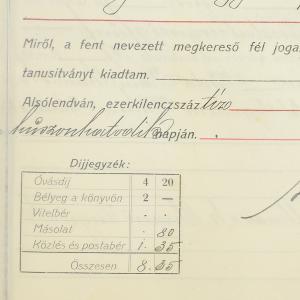 Miről, a fent nevezett megkereső fél joga
tanusitványt kiadtam.
Alsólendván, ezerkilenczszáz tizo
huszonhatodik napján.
Dijjegyzék:
Óvásdij 4 20
Bélyeg a könyvön 2 —
Vitelbér . .
Másolat . 80
Közlés és postabér 1. 35
Összesen 8. 35